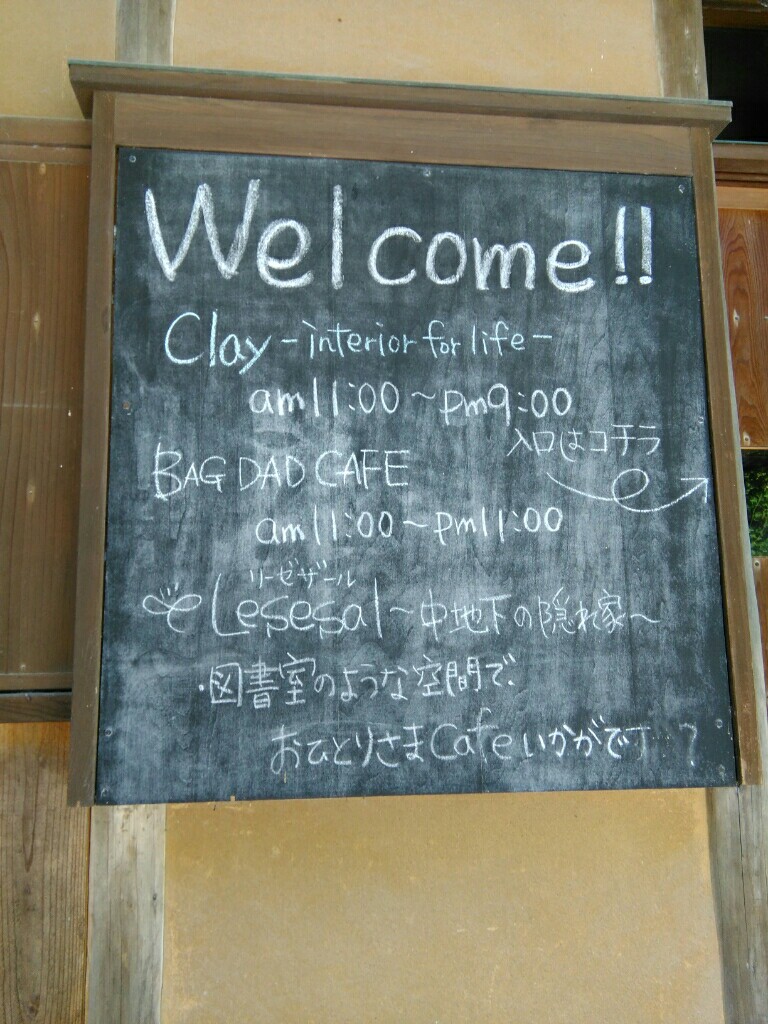 Welcome!!
Clay -interior for life-
am11:00~pm9:00
入口はコチラ
BAGDAD CAFE
am11:00~pm11:00
リーゼザール
Lesesal ~中地下の隠れ家~
・図書室のような空間で、
おひとりさまCafeいかがです ?